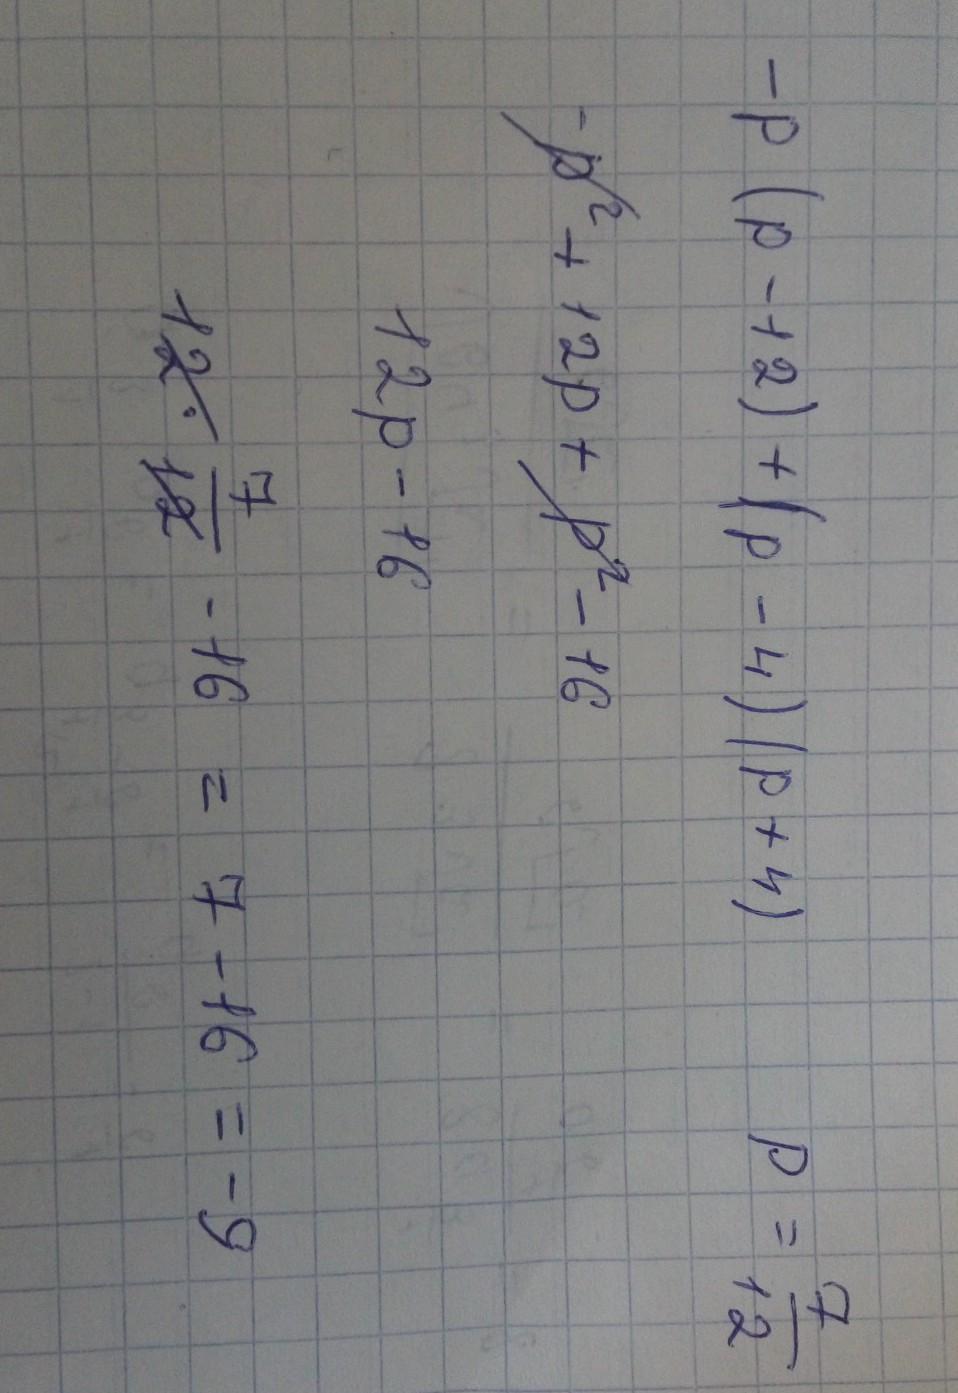 -p(p-12)+(p-4)(p+4) p = 7/12
-p²+12p+p²-16
12p-16
12·7/12-16 = 7-16=-9